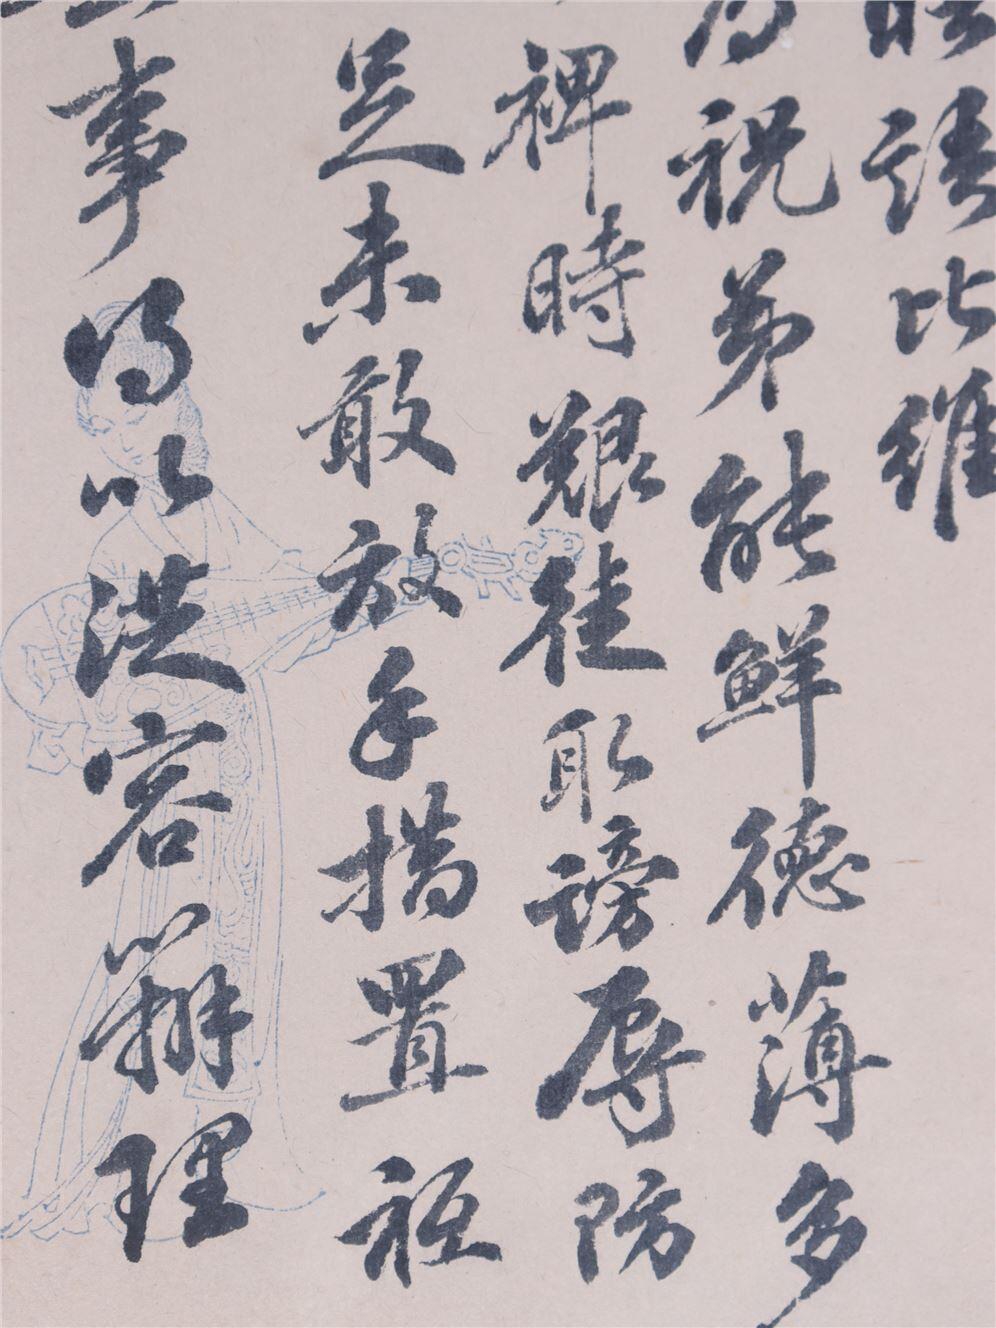 語比維
祝弟能鮮德薄多
裨時艱徒取謗辱防
足未敢放手措置祗
事得以從容辦理